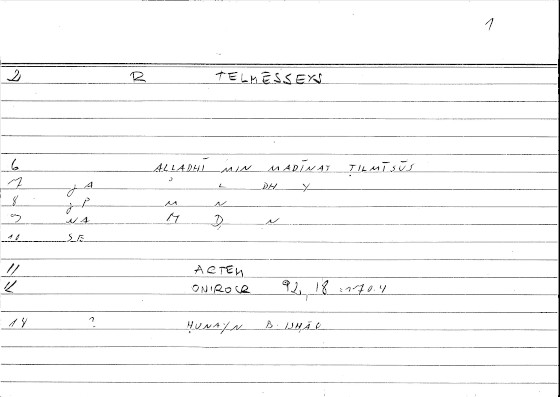 1
2 R TELMĒSSEYS
6 ALLADHĪ MIN MADĪNAT ṬILMĪSŪS
7 jA L DH Y
8 jP M N
9 NA M D N
10 SE
11 ARTEM
12 ONIROCR 92, 18
14 ? ḤUNAYN B. ISḤĀQ